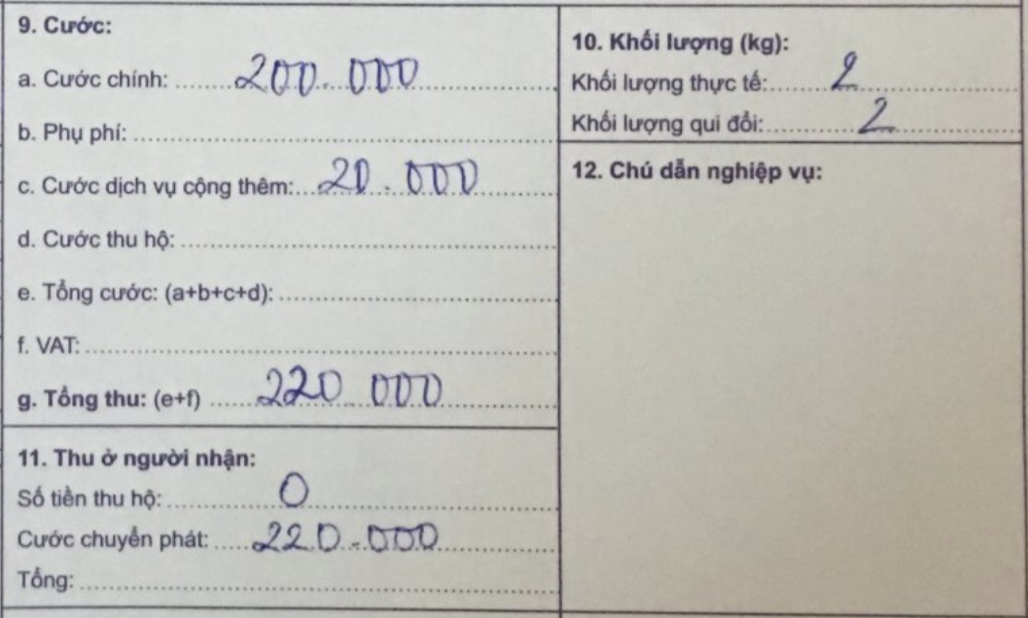 9. Cước:
a. Cước chính: 200.000
b. Phụ phí:
c. Cước dịch vụ cộng thêm: 20.000
d. Cước thu hộ:
e. Tổng cước: (a+b+c+d):
f. VAT:
g. Tổng thu: (e+f) 220 000
11. Thu ở người nhận:
Số tiền thu hộ: 0
Cước chuyển phát: 220.000
Tổng:
10. Khối lượng (kg):
Khối lượng thực tế: 2
Khối lượng qui đổi: 2
12. Chú dẫn nghiệp vụ: